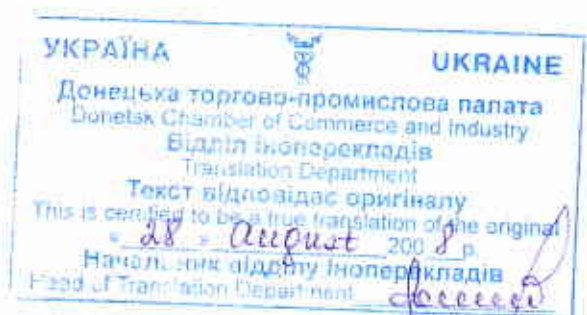 УКРАЇНА UKRAINE
Донецька торгово-промислова палата
Donetsk Chamber of Commerce and Industry
Відділ інoперекладів
Translation Department
Текст відповідає оригіналу
This is certified to be a true translation of the original
« 28 » August 2008 р.
Начальник відділу інoперекладів
Head of Translation Department